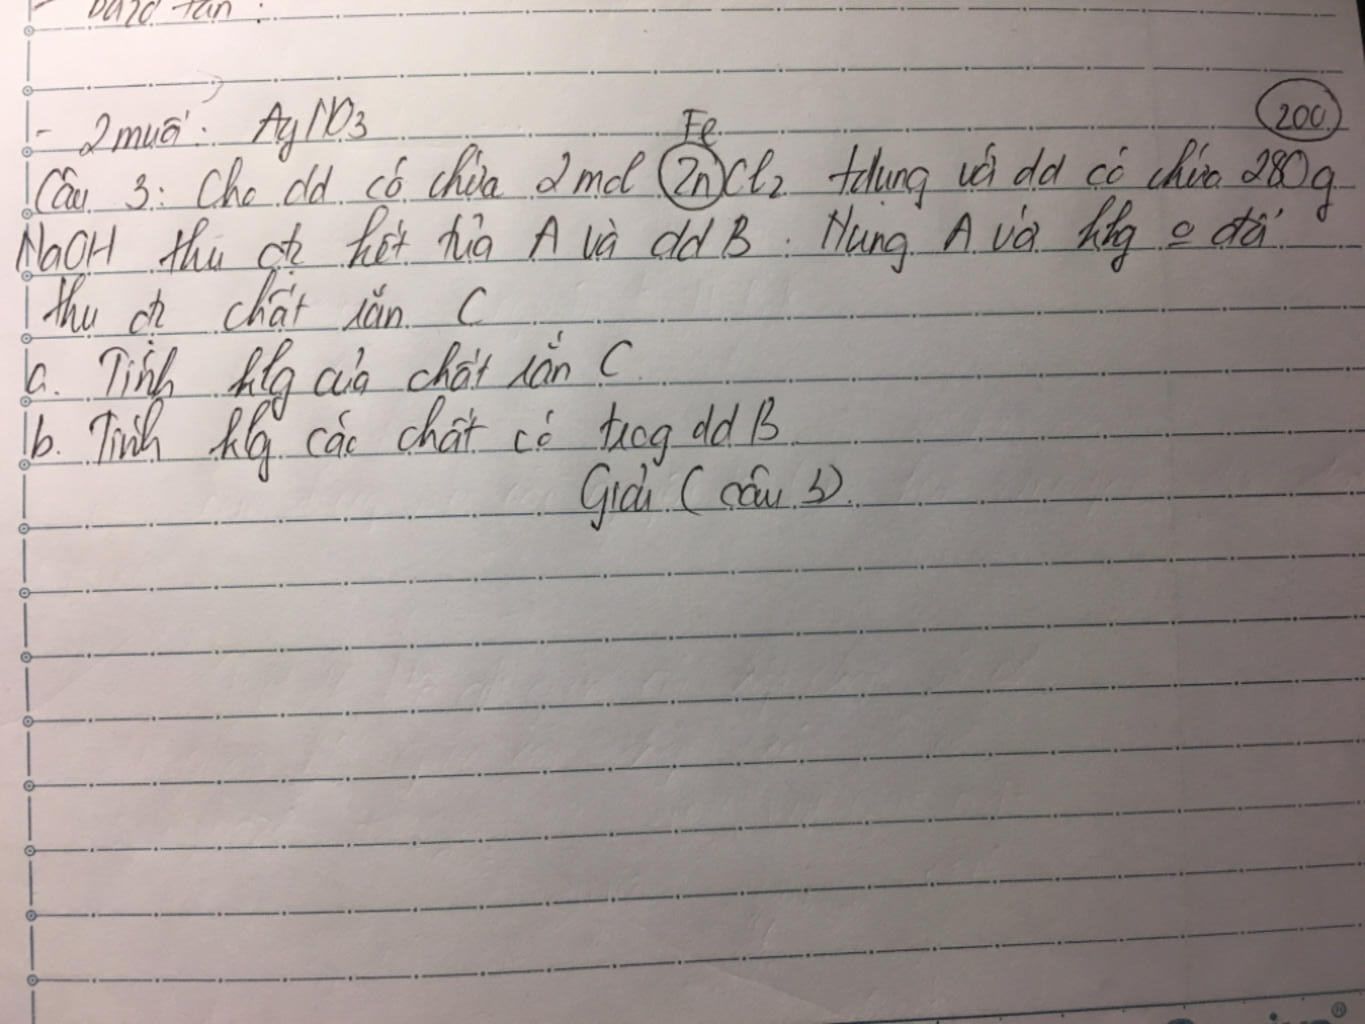 - 2 muối: AgNO3
Fe
200
Câu 3: Cho dd có chứa 2 mol ZnCl2 tdụng với dd có chứa 280g
NaOH thu đc kết tủa A và dd B. Nung A và klg o đổi
thu đc chất rắn C
a. Tính klg của chất rắn C
b. Tính klg các chất có trog dd B
Giải (câu 3)